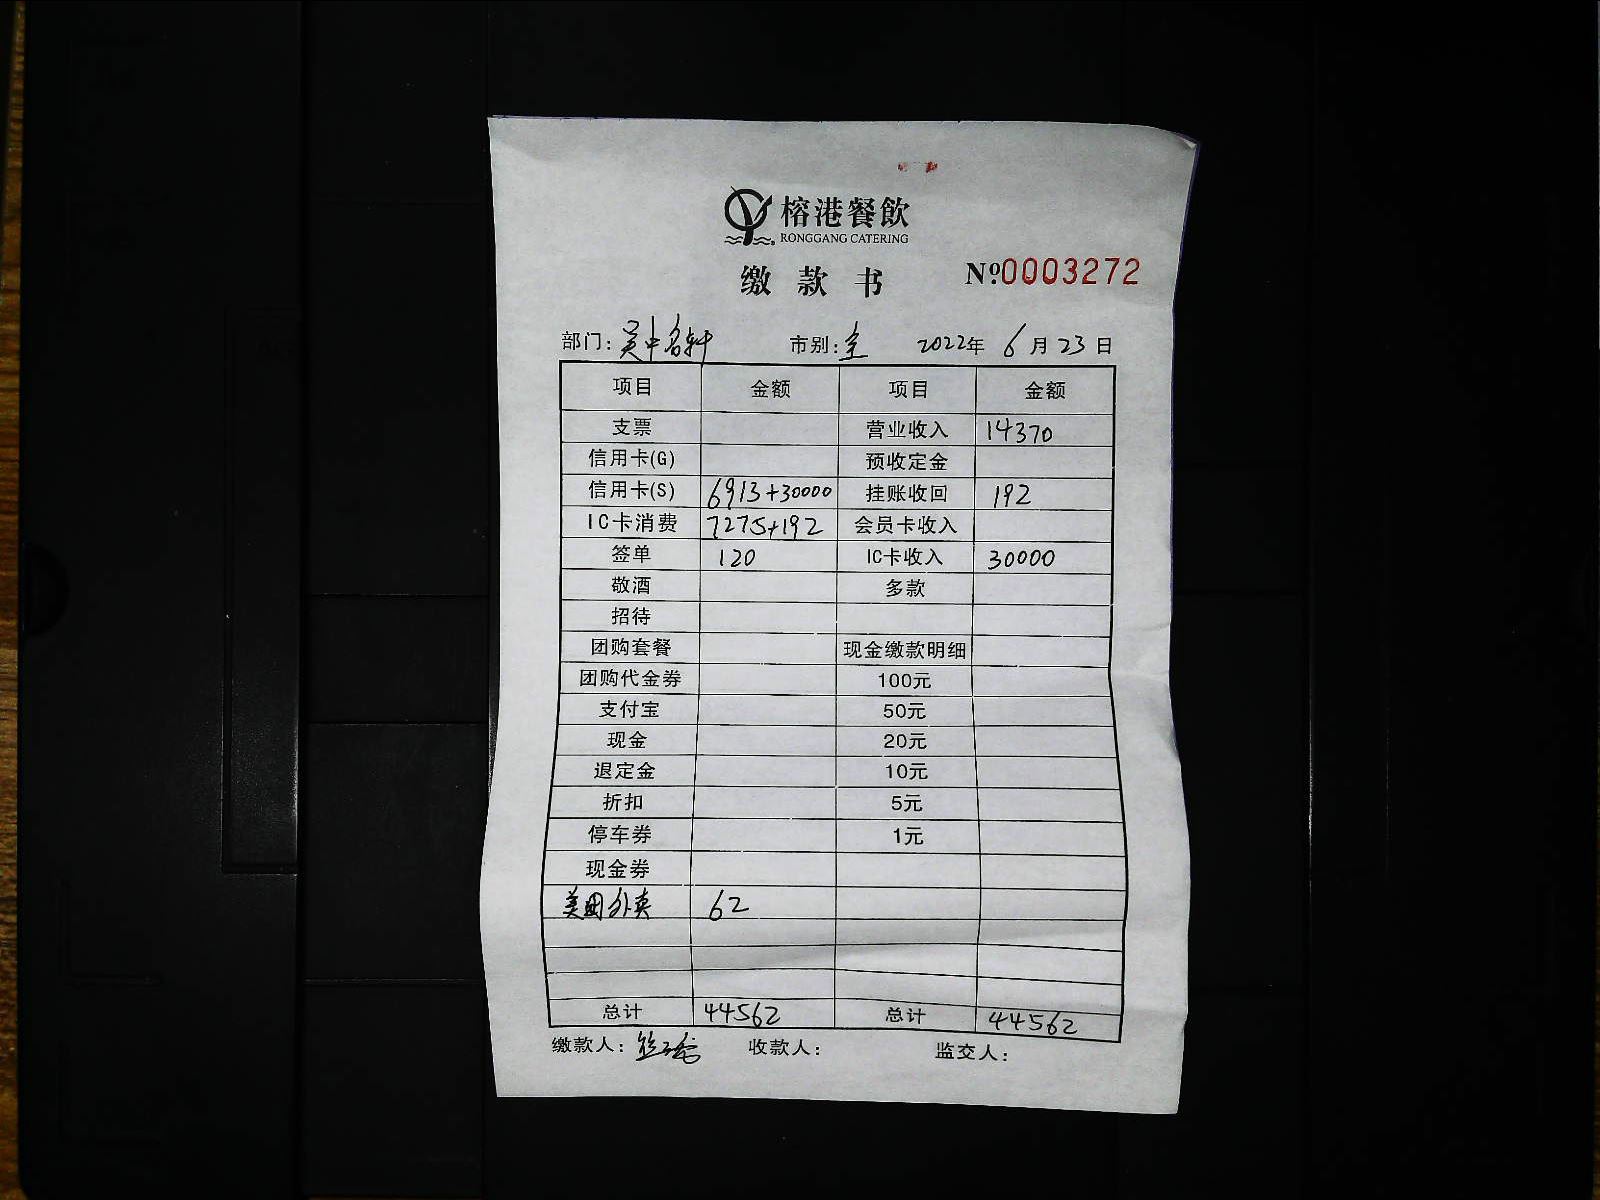 榕港餐飲
RONGGANG CATERING
缴款书 Nº.0003272
部门: 吴中名轩 市别: 全 2022年 6月23日
项目 金额 项目 金额
支票 营业收入 14370
信用卡(G) 预收定金
信用卡(S) 6913+30000 挂账收回 192
IC卡消费 7275+192 会员卡收入
签单 120 IC卡收入 30000
敬酒 多款
招待
团购套餐 现金缴款明细
团购代金券 100元
支付宝 50元
现金 20元
退定金 10元
折扣 5元
停车券 1元
现金券
美团外卖 62
总计 44562 总计 44562
缴款人: 收款人: 监交人: